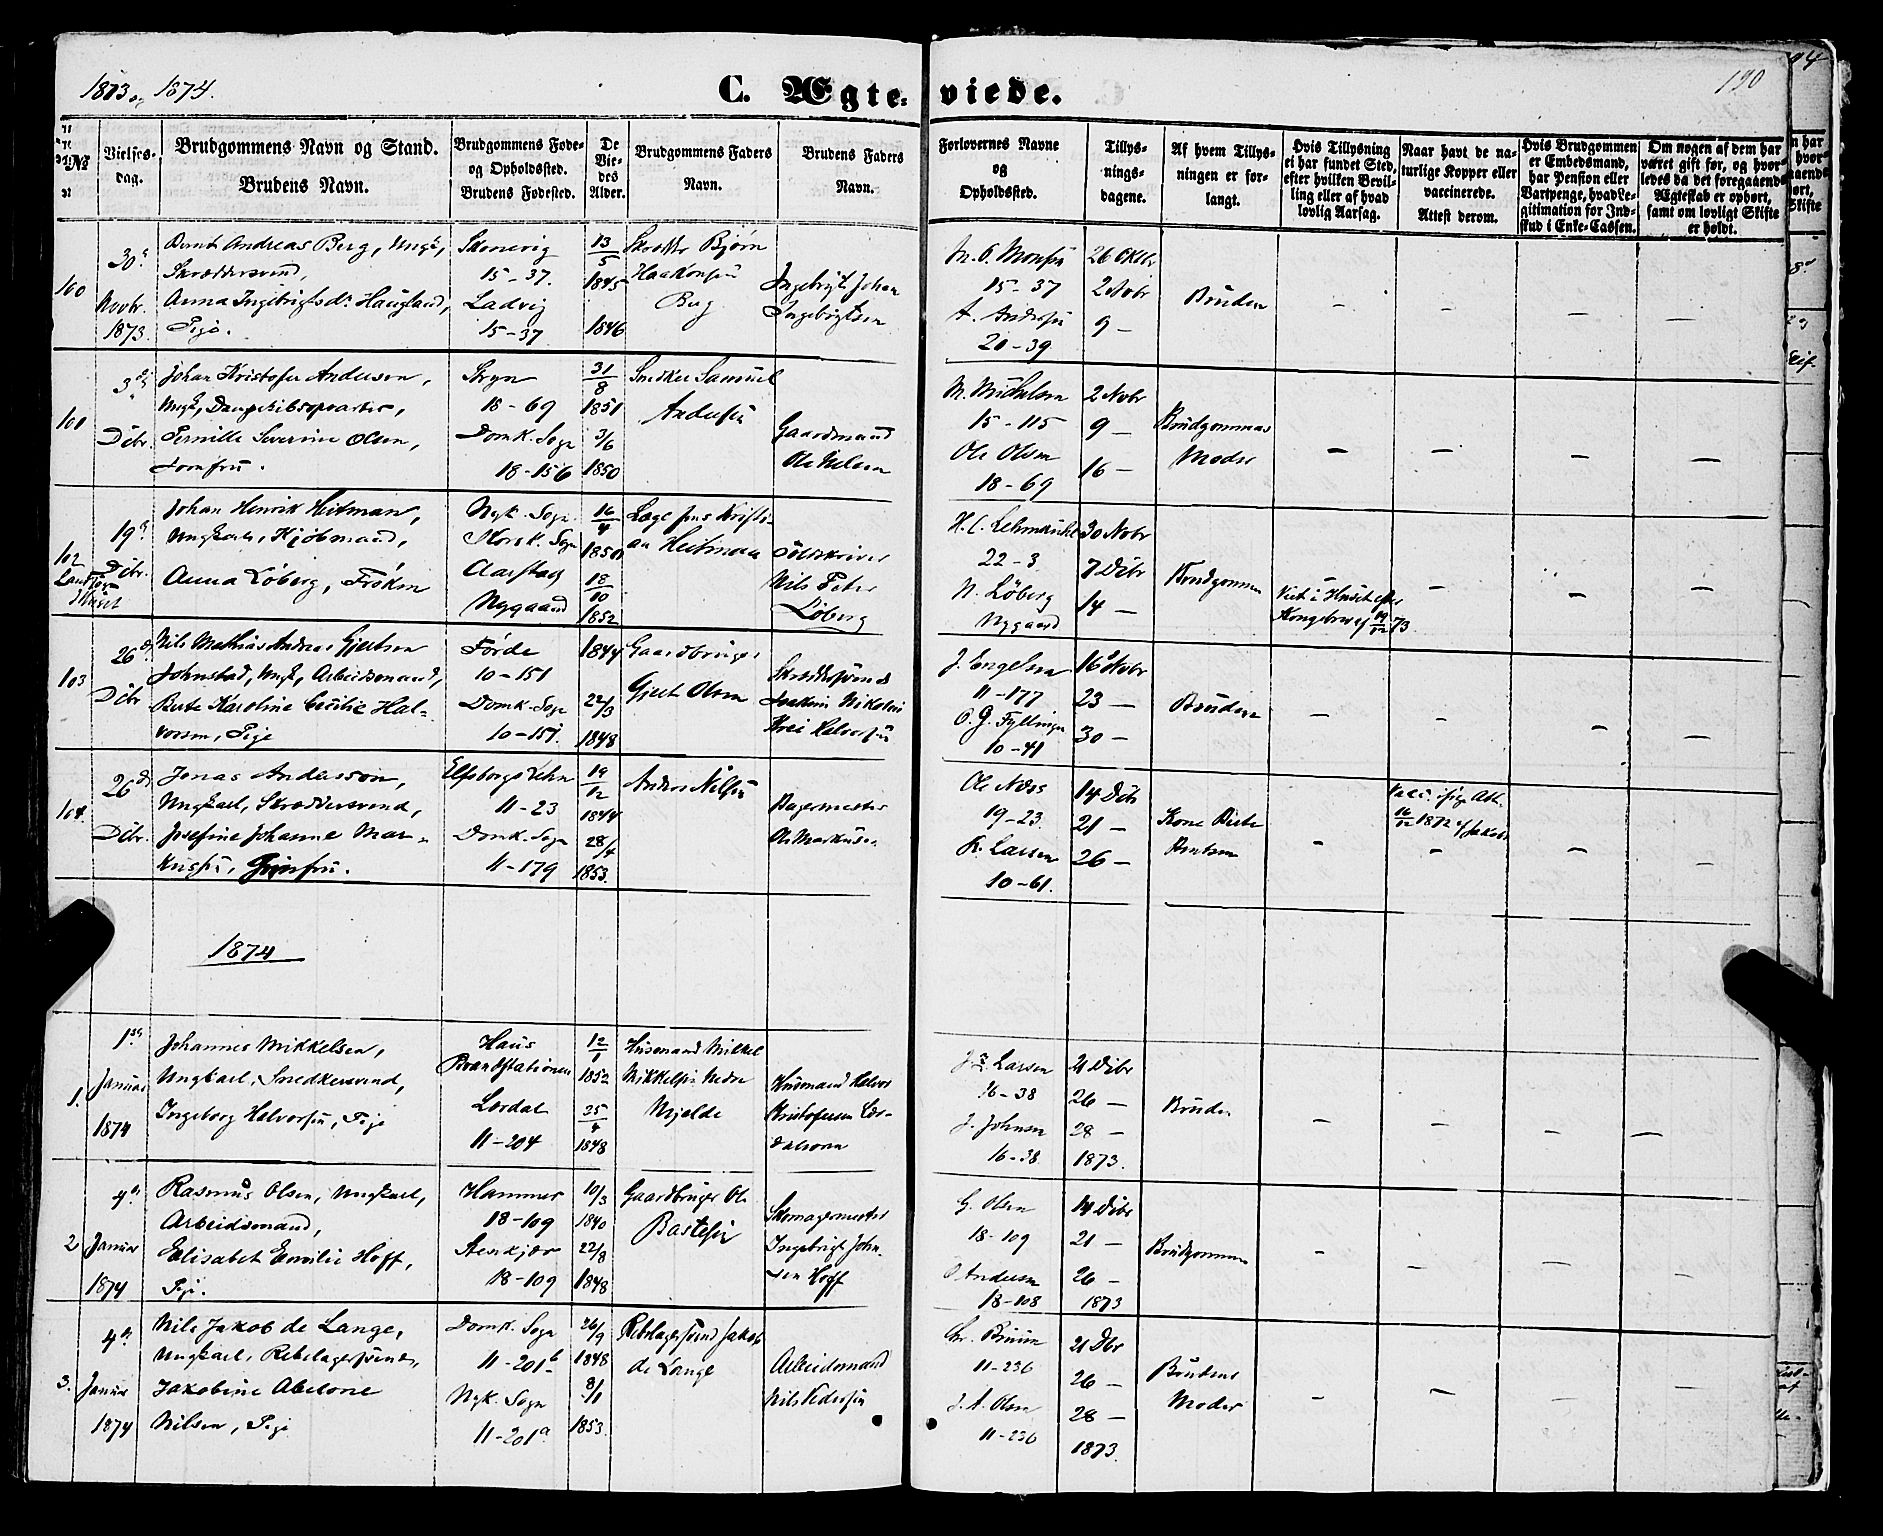 1873 og 1874.
C. Ægteviede.
190
No
Vielses-
dag.
Brudgommens Navn og Stand.
Brudens Navn.
Brudgommens Føde-
og Opholdssted.
Brudens Fødested.
De
Vie-
des
Alder.
Brudgommens Faders
Navn.
Brudens Faders
Navn.
Forlovernes Navne
og
Opholdssted.
Tillys-
nings-
dagene.
Af hvem Tillys-
ningen er for-
langt.
Hvis Tillysning
ei har fundet Sted,
efter hvilken Bevil-
ling eller af hvad
lovlig Aarsag.
Naar havt de na-
turlige Kopper eller
vaccinerede.
Attest derom.
Hvis Brudgommen
er Embedsmand,
har Pension eller
Vartpenge, hvad Le-
gitimation for Ind-
skud i Enke-Cassen.
Om nogen af dem har
været gift før, og hvor-
ledes da det foregaaende
Ægteskab er ophørt,
samt om lovligt Skifte
er holdt.
100
30 Novbr. 1873.
Andreas Berg, Ungk.,
Skræddersvend,
Anna Ingebrigtsdr Haugland,
Pige.
Skonevig
15-37.
Ladvig
15-37
13/5 1845
1846
Bjørn
Haakonsen
Berg
Ingebrigt Johan
Ingebrigtsen
M. O. Monsen
15-37
A. Andersen
20-39
26 Oktbr
2 Novbr
9 —
Bruden
— — — —
101
3 Dcbr.
Johan Kristofer Anderson,
Ungk, Dampskibsopvarter,
Pernille Severine Olsen,
Jomfru.
Stryn
18-69
Domk. Sogn
18-156
31/8 1851
3/6 1850
Snedker Samuel
Andersen
Gaardmand
Ole Nelsen
M. Michelsen
15-115
Ole Olsen
18-69
2 Novbr
9 —
16 —
Brudgommens
Moder
— — — —
102
19 Dcbr.
Johan Henrik Heitman,
Ungkarl, Kjøbmand,
Anna Løberg, Frøken
Nyk. Sogn
Korsk. Sogn
Aarstad
Nygaard
16/4 1850
18/10 1852
Læge Jens Kristi-
an Heitman
Toldskriver
Nils Peter
Løberg
22-3
N. Løberg
Nygaard
30 Novbr
7 Dcbr
14 —
Brudgommen
Viet i Huset efter
Kongebrev af 19/12 73
— — —
103
26 Dcbr
Nils Mathias Andreas Gjertsen
Johnstad, Ungk, Arbeidsmand,
Berte Karoline Cecilie Hal-
vorsen, Pige
Førde
10-151
Domk. Sogn
10-151.
1844
22/3 1848
Gaardbruger
Gjert Olsen
Skræddersvend
Joakim Nikolai
Krei Halvorsen
J. Engelsen
11-177
O. G. Fyllingen
10-41
16 Novbr
23 —
30 —
Bruden
— — — —
104.
26 Dcbr.
Jonas Andersson,
Ungkarl, Skræddersvend,
Josefine Johanne Mar-
kusen, Jomfru.
Elfsborgs Lehn
11-23
Domk. Sogn
11-179
19/12 1844
28/4 1853.
Anders Nilsen
Bagermester
Ole Markusen
Ole Næss
19-23.
K. Larsen
10-61.
14 Dcbr
21 —
26 —
Kone Berte
Berntsen
— — — —
1874
1.
1 Januar 1874
Johannes Mikkelsen,
Ungkarl, Snedkersvend,
Ingeborg Halvorsen, Pige
Haus
Brandstationen
Lerdal
11-204
12/1 1852
25/4 1848
Husmand Mikkel
Mikkelsen Nedre
Mjelde
Husmand Halvor
Kristofersen Lær-
dalsøren
J. Larsen
16-38
J. Johnsen
16-38
21 Dcbr
26 —
28 —
1873.
Bruden
— — — —
2
4 Januar 1874
Rasmus Olsen, Ungkarl,
Arbeidsmand,
Elisabet Emilie Hoff,
Pige.
Hammer
18-109
Stenkjær
18-109
10/3 1840
22/8 1848
Gaardbruger Ole
Bastesen
Skomagermester
Ingebrigt John-
sen Hoff
G. Olsen
18-109
O Andersen
18-108
14 Dcbr
21 —
26 —
1873
Brudgommen
— — — —
3.
4 Januar 1874
Nils Jakob de Lange,
Ungkarl, Rebslagersvend,
Jakobine Abelone
Nilsen, Pige
Domk. Sogn
11-201b
Nyk. Sogn
11-201a
26/9 1848
8/1 1853.
Rebslagersvend Jakob
de Lange
Arbeidsmand
Nils Pedersen
Chr. Bruun
11-236
J. A. Olsen
11-236
21 Dbr
26 —
28 —
1873.
Brudens
Moder
— — — —